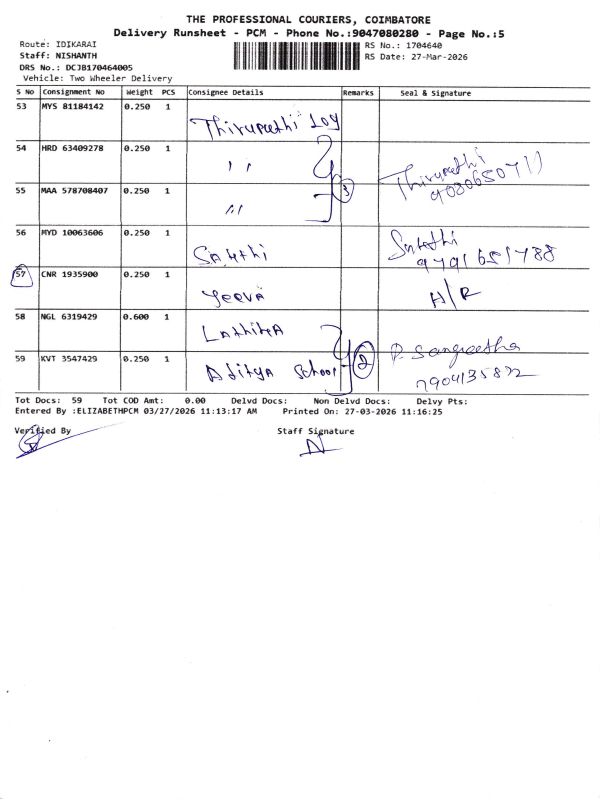 THE PROFESSIONAL COURIERS, COIMBATORE
Delivery Runsheet - PCM - Phone No.:9047080280 - Page No.:5
Route: IDIKARAI
RS No.: 1704640
Staff: NISHANTH
RS Date: 27-Mar-2026
DRS No.: DCJB170464005
Vehicle: Two Wheeler Delivery
S No Consignment No Weight PCS Consignee Details Remarks Seal & Signature
53 MYS 81184142 0.250 1 Thirupathi
54 HRD 63409278 0.250 1 ,, Thirupathi
55 MAA 578708407 0.250 1 ,, 3
56 MYD 10063606 0.250 1 9791651788
57 CNR 1935900 0.250 1 Jeeva A/R
58 NGL 6319429 0.600 1 Lathika
59 KVT 3547429 0.250 1 Aditya School 2 P. Sangeetha
Tot Docs: 59 Tot COD Amt: 0.00 Delvd Docs: Non Delvd Docs: Delvy Pts:
Entered By :ELIZABETHPCM 03/27/2026 11:13:17 AM Printed On: 27-03-2026 11:16:25
Verified By Staff Signature
N